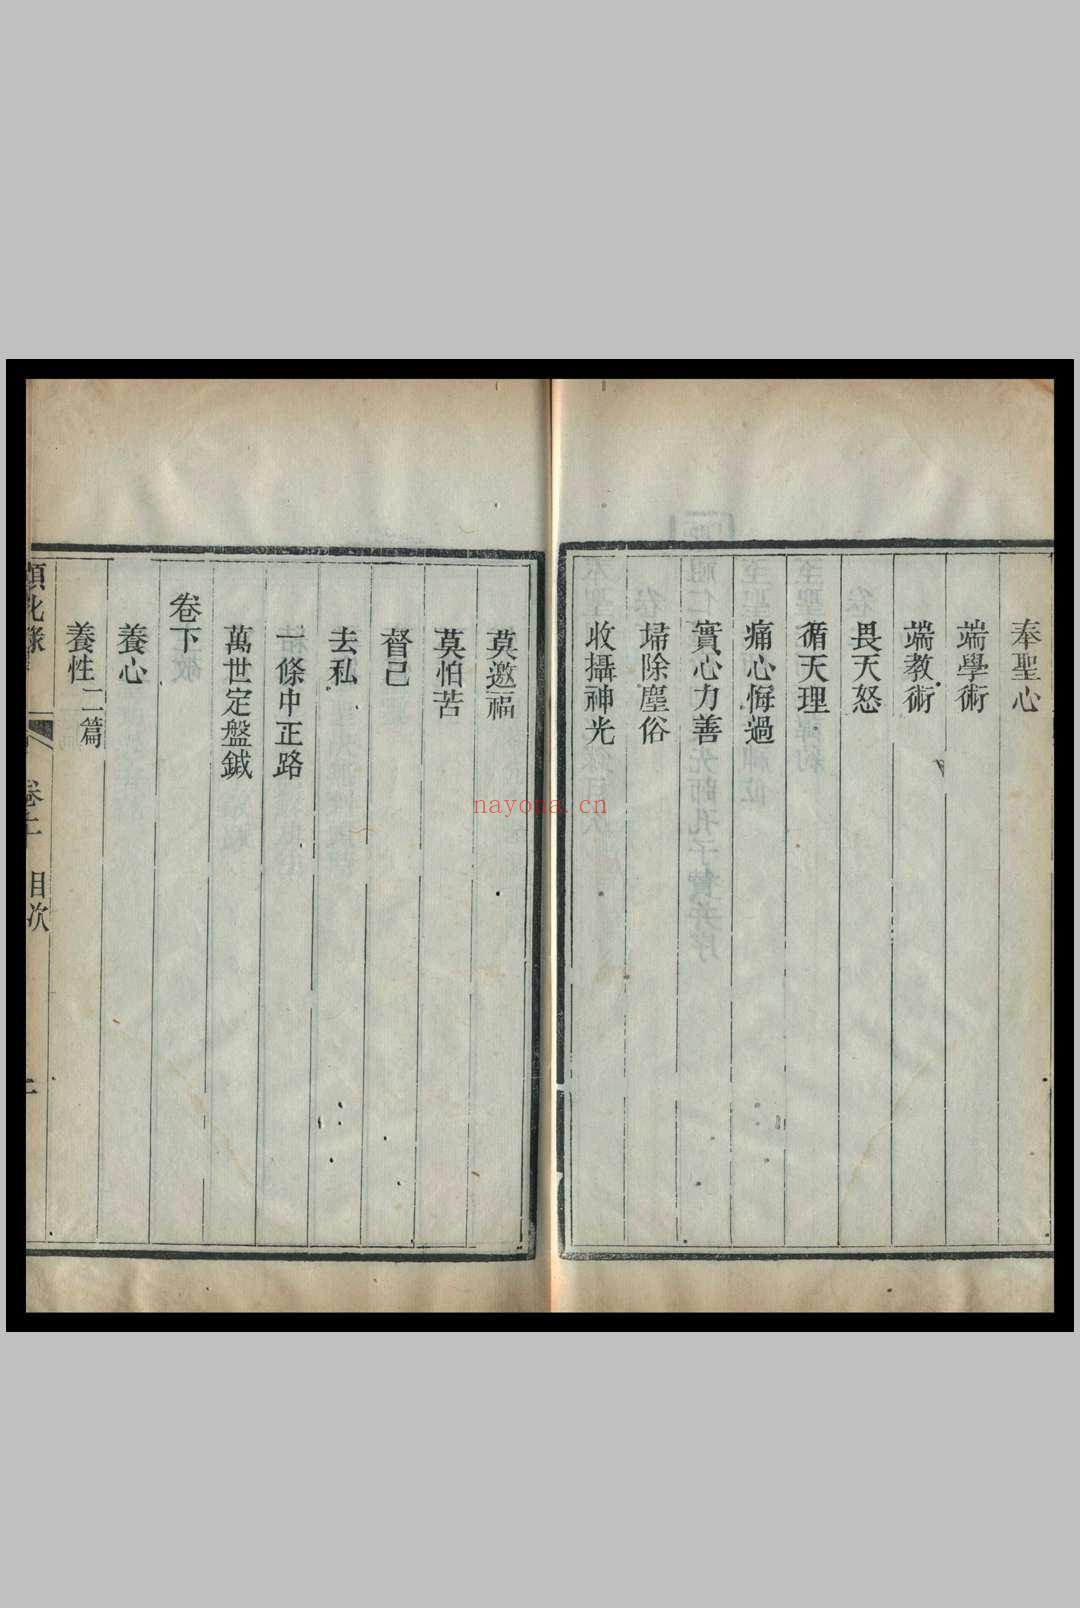 奉聖心
端學術
端教術
畏天怒
循天理
痛心悔過
實心力善
掃除塵俗
收攝神光
莫邀福
莫怕苦
督己
去私
一條中正路
萬世定盤鍼
卷下
養心
養性二篇
化錄
卷上
目次
nayona.cn